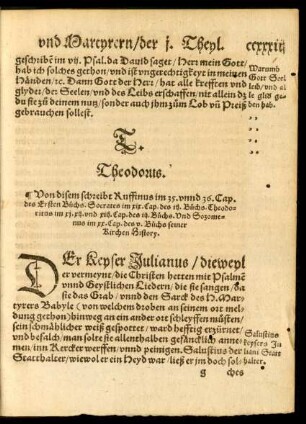 vnd Martyrern/der j. Theyl. ccxxxiij
geschribẽ im vij. Psal. da Dauid saget/Herr mein Gott/
hab ich solches gethon/vnd ist vngerechtigkeyt in meinen
Hånden/ꝛc. Dann Gott der Herr/hat alle krefften vnd
glyder/der Seelen/vnd des Leibs erschaffen/nit allein dz
du sie zů deinem nutz/sonder auch jhm zům Lob vñ Preiß
gebrauchen sollest.
Warumb
Gott Seel
vnd al
le glis ge-
ben hab.
T.
Theodorus.
¶ Von disem schreibt Ruffinus im 35. vnnd 36. Cap.
des Ersten Bůchs. Socrates im xix. Cap. des iij. Bůchs. Theodo-
ritus im xj. xij. vnd xiij. Cap. des iij. Bůchs. Vnd Sozome-
nus im xx. Cap. des v. Bůchs seiner
Kirchen History.
DEr Keyser Julianus/dieweyl
er vermeynt/die Christen hetten mit Psalmẽ
vnnd Geystlichen Liedern/die sie sangen/da
sie das Grab/vnnd den Sarck des H. Mar-
tyrers Babyle (von welchem droben an seinem ort mel-
dung gethon) hinweg an ein ander ort schleyffen můsten/
sein schmåhlicher weiß gespottet/ward hefftig erzürnet/
vnd befalch/man solte sie allenthalben gefåncklich anne-
men/inn Kercker werffen/vnnd peinigen. Salustius der
Statthalter/wiewol er ein Heyd war/ließ er jm doch sol-
Salustius
Keysers Ju
liani Statt
halter.
g ches